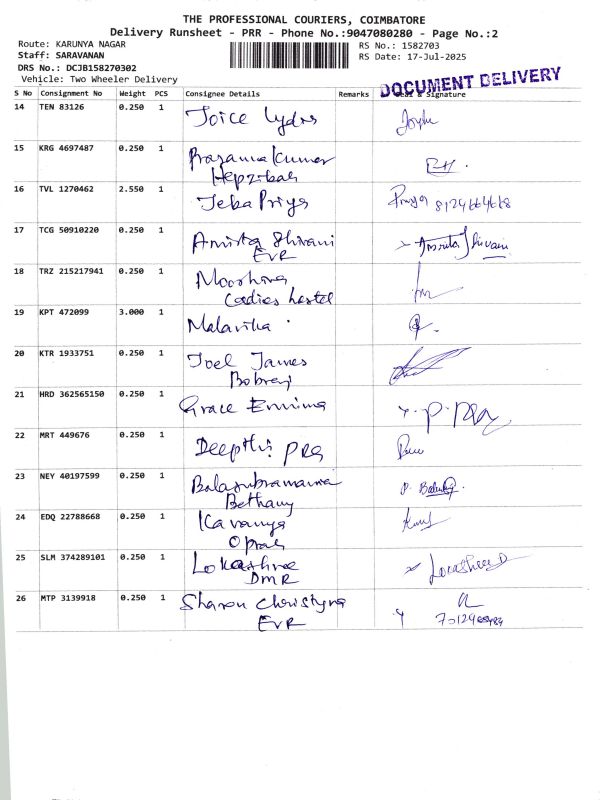 THE PROFESSIONAL COURIERS, COIMBATORE
Delivery Runsheet - PRR - Phone No.:9047080280 - Page No.:2
Route: KARUNYA NAGAR
RS No.: 1582703
Staff: SARAVANAN
RS Date: 17-Jul-2025
DRS No.: DCJB158270302
Vehicle: Two Wheeler Delivery
DOCUMENT DELIVERY
S No Consignment No Weight PCS Consignee Details Remarks & Signature
14 TEN 83126 0.250 1 Joice Lydis
15 KRG 4697487 0.250 1 Prasanna Kumar
Hepzibah
16 TVL 1270462 2.550 1 Jeba Priya Priya 8124664668
17 TCG 50910220 0.250 1 Amirta Shivani Amirta Shivani
EVR
18 TRZ 215217941 0.250 1 Moorhina
Ladies hostel
19 KPT 472099 3.000 1 Malavika
20 KTR 1933751 0.250 1 Joel James
21 HRD 362565150 0.250 1 Grace Emima
22 MRT 449676 0.250 1 Deepthi PRG
23 NEY 40197599 0.250 1 Balasubramania
Bethany
24 EDQ 22788668 0.250 1 Kavanya
25 SLM 374289101 0.250 1 Lokashree Lokashree D
DMR
26 MTP 3139918 0.250 1 Sharon Christyna
EVR